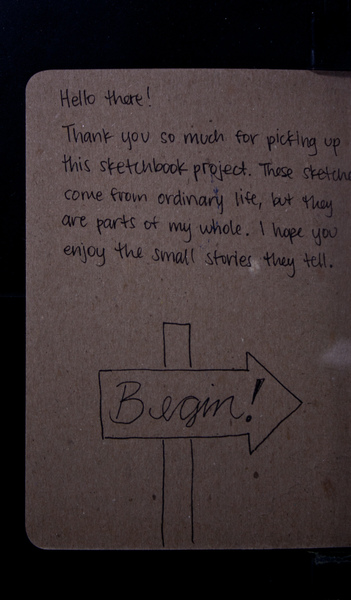 Hello there!
Thank you so much for picking up
this sketchbook project. These
come from ordinary life, but they
are parts of my whole. I hope you
enjoy the small stories they tell.
Begin!